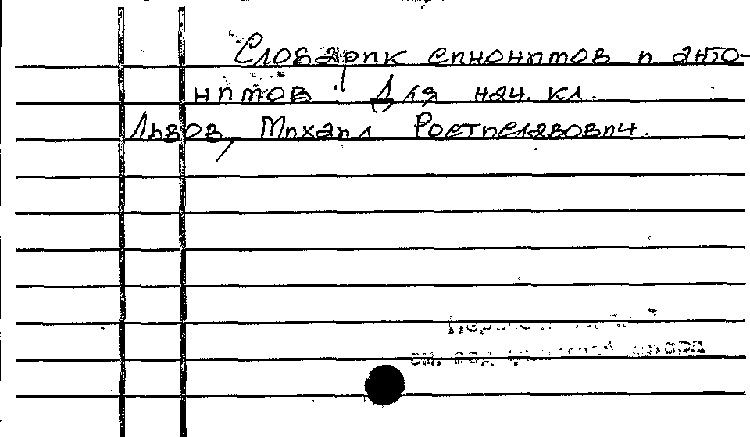 Словарик синонимов и анто-
нимов : Для нач. кл.
Львов, Михаил Ростиславович.